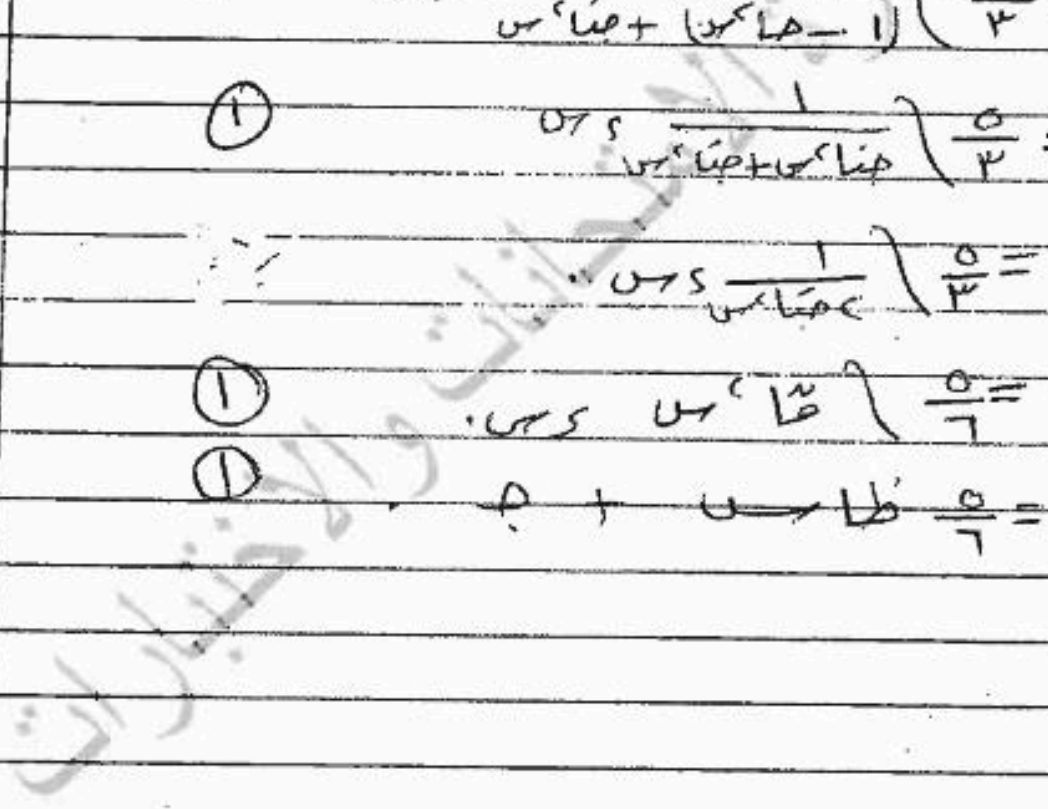 ٣ (١ - جا٢س) + جتا٢س
= ٥/٣ ∫ ١/(جتا٢س + جتا٢س) ءس ①
= ٥/٣ ∫ ١/(٢جتا٢س) ءس.
= ٥/٦ ∫ قا٢س ءس. ①
= ٥/٦ ظا س + جـ. ①
الامتحانات والاختبارات